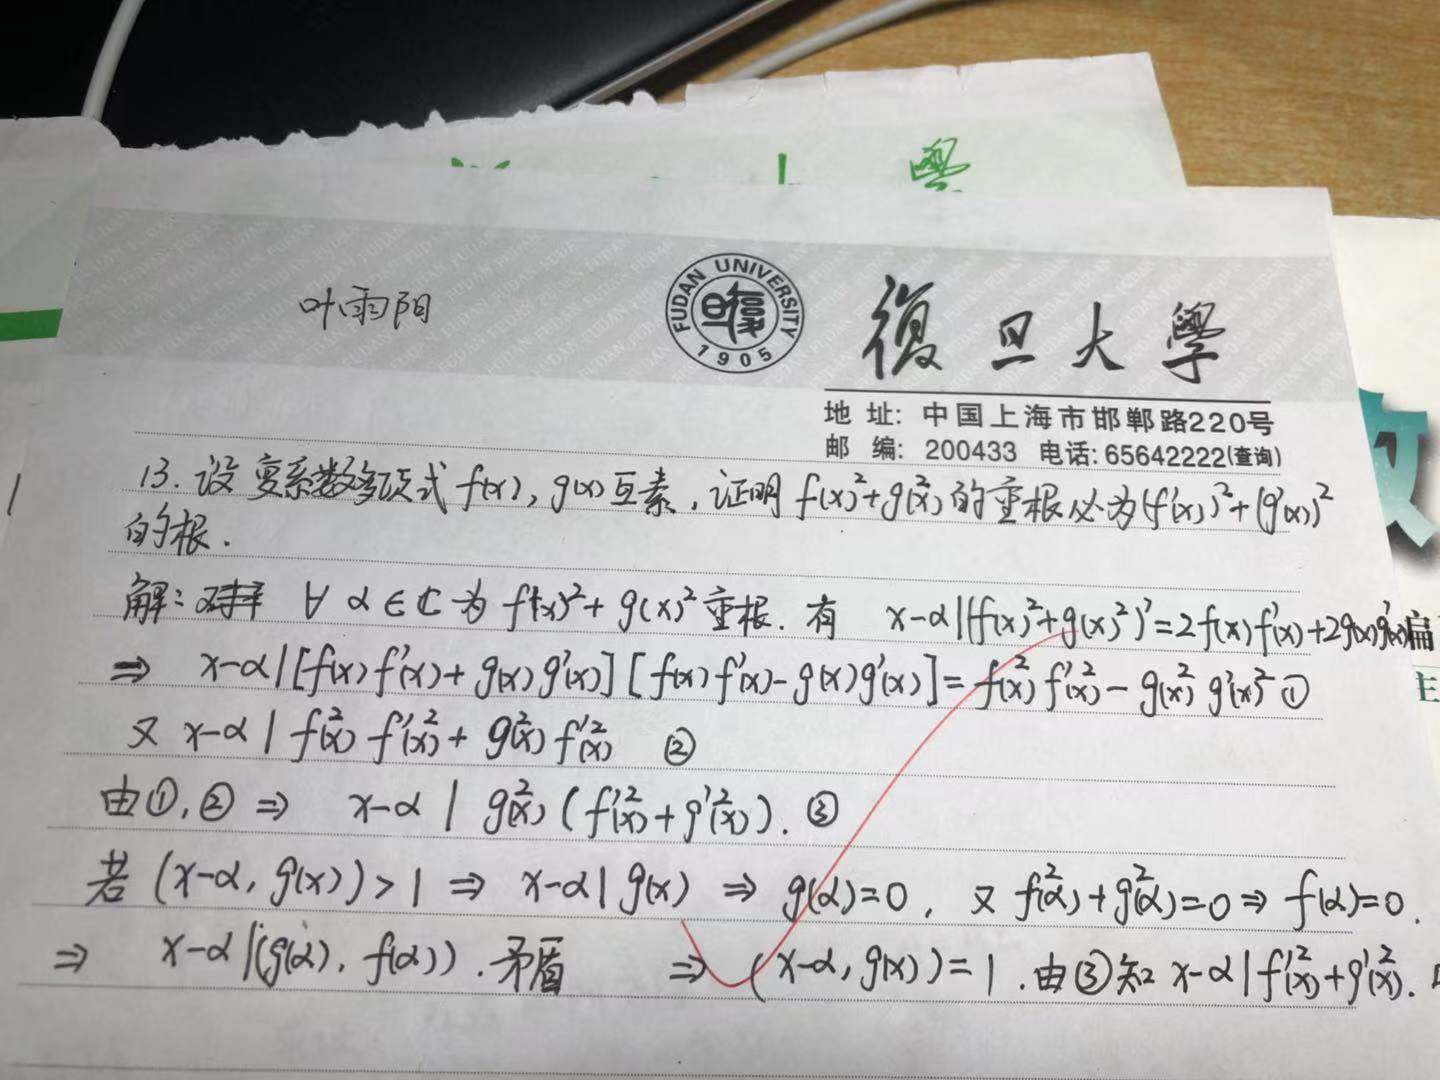 學
叶雨阳
FUDAN UNIVERSITY
1905
復旦大學
地 址: 中国上海市邯郸路220号
邮 编: 200433 电话: 65642222(查询)
13. 设复系数多项式 f(x), g(x) 互素, 证明 f(x)²+g(x)² 的重根必为 (f'(x))²+(g'(x))²
的根.
解: ∀ α∈ℂ 为 f(x)²+g(x)² 重根. 有 x-α|(f(x)²+g(x)²)'=2f(x)f'(x)+2g(x)g'(x)
⇒ x-α|[f(x)f'(x)+g(x)g'(x)][f(x)f'(x)-g(x)g'(x)]=f²(x)f'²(x)-g²(x)g'(x)² ①
又 x-α | f²(x)f'²(x)+g²(x)f'²(x) ②
由①,② ⇒ x-α | g²(x)(f'²(x)+g'²(x)). ③
若 (x-α, g(x))>1 ⇒ x-α|g(x) ⇒ g(α)=0, 又 f²(α)+g²(α)=0 ⇒ f(α)=0.
⇒ x-α|(g(α), f(α)). 矛盾 ⇒ (x-α, g(x))=1. 由③知 x-α|f'²(x)+g'²(x).